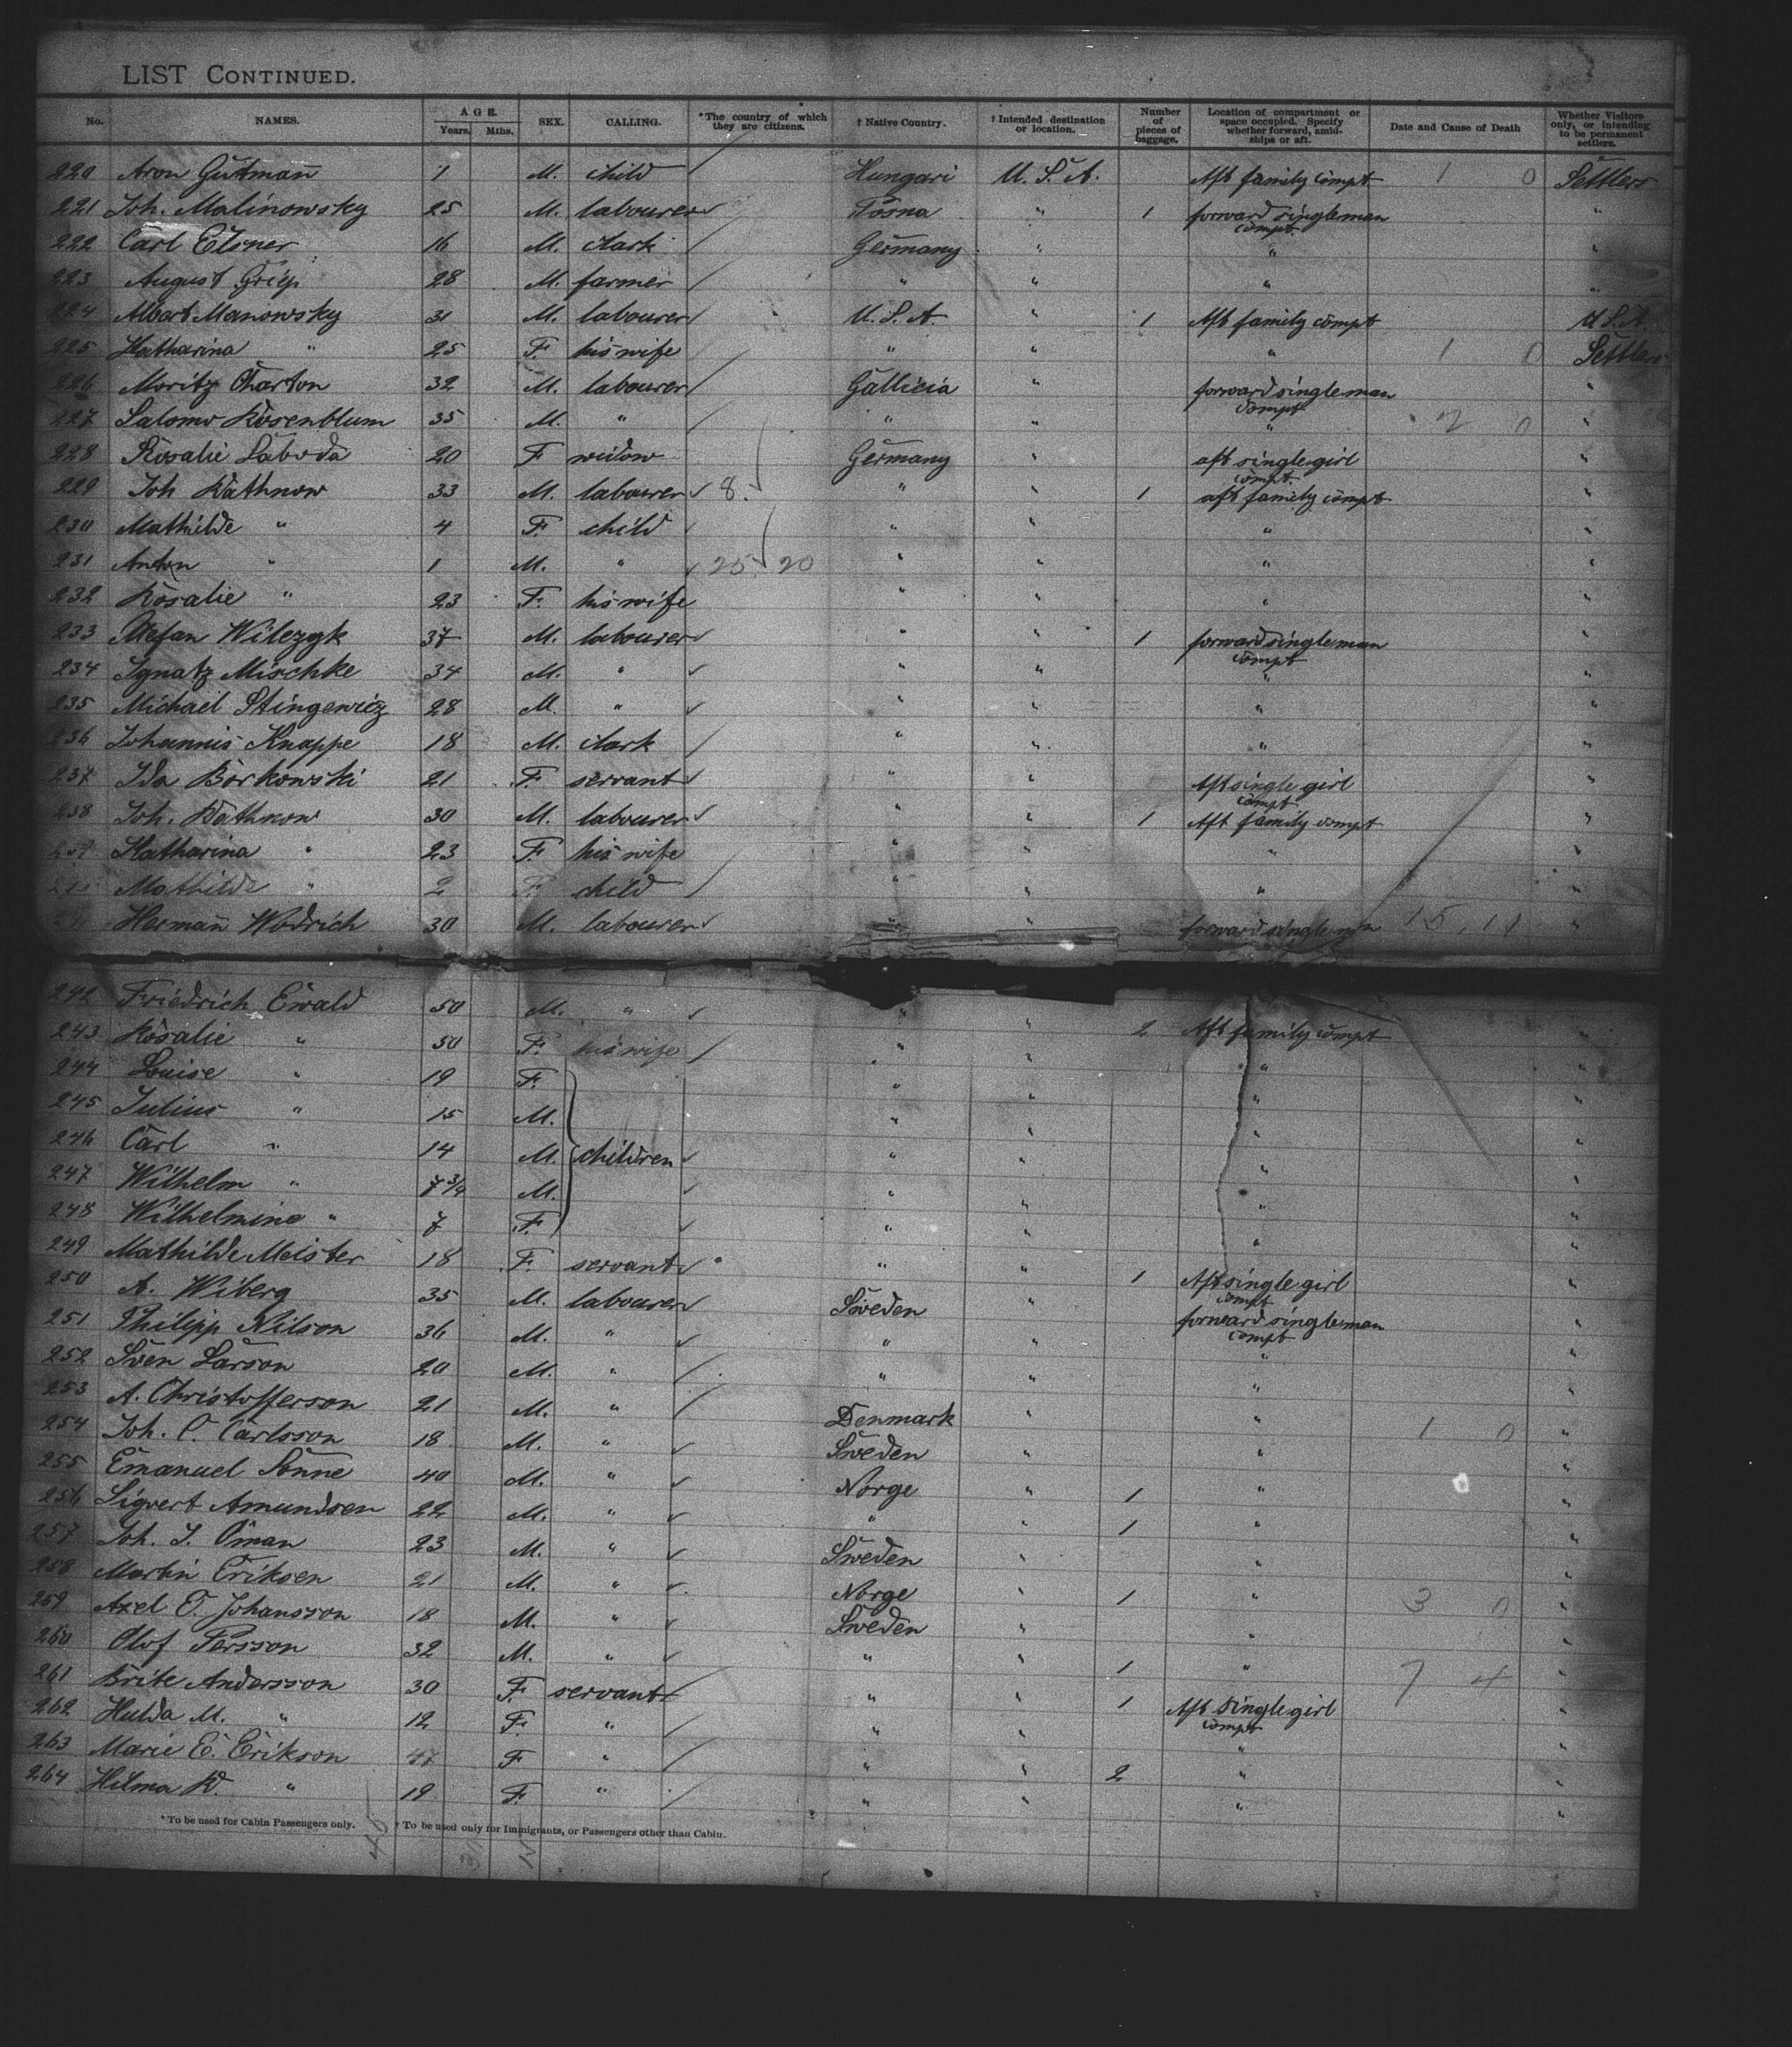 LIST CONTINUED.
No. NAMES. AGE. Years. Mths. SEX. CALLING. *The country of which they are citizens. † Native Country. † Intended destination or location. Number of pieces of baggage. Location of compartment or space occupied. Specify whether forward, amidships or aft. Date and Cause of Death Whether Visitors only, or intending to be permanent settlers.
220 Aron Gutmann 1 M. child Hungari U. S. A. Aft family compt 1 0 Settlers
221 Joh. Malinowsky 25 M. labourer Posna " 1 forward single man compt "
222 Carl Elsner 16 M. clark Germany " " "
223 August Griep 28 M. farmer " " " "
224 Albert Manowsky 31 M. labourer U. S. A. " 1 Aft family compt U S. A.
225 Katharina " 25 F. his wife " " " 1 0 Settlers
226 Moritz Charton 32 M. labourer Gallicia " forward single man compt "
227 Salomo Rosenblum 35 M. " " " " 2 0 "
228 Rosalie Laboda 20 F widow Germany " aft single girl compt. "
229 Joh Rathnow 33 M. labourer 8. " " 1 aft family compt "
230 Mathilde " 4 F. child " " " "
231 Anton " 1 M. " 25 20 " " " "
232 Rosalie " 23 F. his wife " " " "
233 Stefan Wilczyk 37 M. labourer " " 1 forward single man compt "
234 Ignatz Mischke 34 M. " " " " "
235 Michael Stingewicz 28 M. " " " " "
236 Johannis Knappe 18 M. clark " " " "
237 Ida Borkowski 21 F. servant " " Aft single girl compt "
238 Joh. Rathnow 30 M. labourer " " 1 Aft family compt "
Katharina " 23 F. his wife " " " "
Mathilde " 2 F. child " " " "
Hermann Wodrich 30 M. labourer " " forward single man 15. 11 "
242 Friedrich Ewald 50 M. " " " 2 Aft family compt "
243 Rosalie " 50 F. his wife " " " "
244 Louise " 19 F. " " " "
245 Julius " 15 M. " " " "
246 Carl " 14 M. children " " " "
247 Wilhelm " 7 3/4 M. " " " "
248 Wilhelmine " 7 F. " " " "
249 Mathilde Meister 18 F. servant " " 1 Aft single girl compt "
250 A. Wiberg 35 M. labourer Sweden " forward single man compt "
251 Philipp Nilson 36 M. " " " " "
252 Sven Larson 20 M. " " " " "
253 A. Christofferson 21 M. " Denmark " " 1 0 "
254 Joh. C. Carlsson 18 M. " Sweden " " "
255 Emanuel Sonne 40 M. " Norge " 1 " "
256 Sigvert Amundsen 22 M. " " " 1 " "
257 Joh. S. Öman 23 M. " Sweden " " "
258 Martin Eriksen 21 M. " Norge " 1 " 3 0 "
259 Axel E. Johansson 18 M. " Sweden " " "
260 Olof Persson 32 M. " " " 1 " 7 4 "
261 Brite Andersson 30 F. servant " " 1 Aft single girl compt "
262 Hulda M. " 12 F. " " " " "
263 Marie E. Erikson 47 F " " " 2 " "
264 Hilma K. " 19 F. " " " " "
* To be used for Cabin Passengers only. † To be used only for Immigrants, or Passengers other than Cabin.